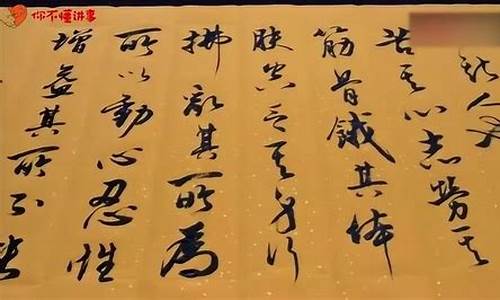 你不懂讲事
人
苦其心志勞其
筋骨餓其体
肤空乏其身行
拂亂其所為
所以動心忍性
增益其所不